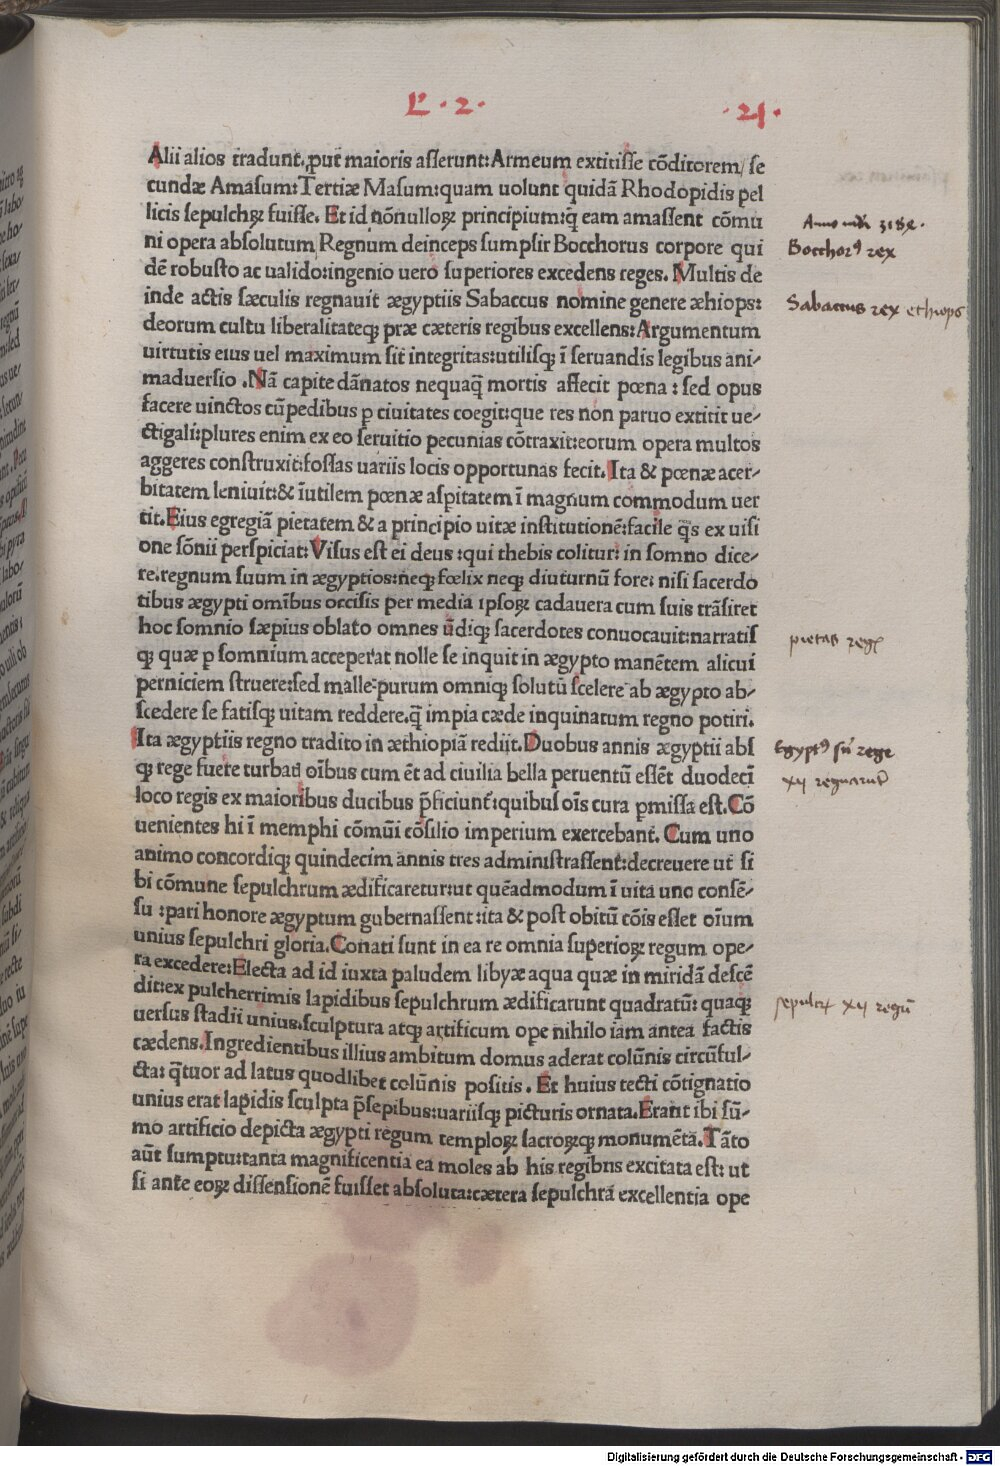 L . 2 .
. 21 .
Alii alios tradunt. ꝓut maioris asserunt: Armeum extitisse cõditorem / se
cundæ Amasum: Tertiæ Masum: quam uolunt quidã Rhodopidis pel
licis sepulchꝝ fuisse. Et id nõnulloꝝ principium: q̃ eam amassent cõmu
ni opera absolutum Regnum deinceps sumpsit Bocchorus corpore qui
dẽ robusto ac ualido: ingenio uero superiores excedens reges. Multis de
inde actis sæculis regnauit ægyptiis Sabaccus nomine genere æhiops:
deorum cultu liberalitateqꝫ præ cæteris regibus excellens: Argumentum
uirtutis eius uel maximum sit integritas: utilisqꝫ ĩ seruandis legibus ani-
maduersio . Nã capite dãnatos nequaq̃ mortis affecit pœna : sed opus
facere uinctos cũ pedibus p ciuitates coegit: que res non paruo extitit ue-
ctigali: plures enim ex eo seruitio pecunias cõtraxit: eorum opera multos
aggeres construxit: fossas uariis locis opportunas fecit. Ita & pœnæ acer-
bitatem leniuit: & ĩutilem pœnæ aspitatem ĩ magnum commodum uer
tit. Eius egregiã pietatem & a principio uitæ institutionẽ: facile q̃s ex uisi
one sõnii perspiciat: Visus est ei deus : qui thebis colitur: in somno dice-
re. regnum suum in ægyptios: neqꝫ fœlix neqꝫ diuturnũ fore: nisi sacerdo
tibus ægypti omĩbus occisis per media ipsoꝝ cadauera cum suis trãsiret
hoc somnio sæpius oblato omnes ũdiqꝫ sacerdotes conuocauit: narratis
qꝫ quæ p somnium acceperat nolle se inquit in ægypto manẽtem alicui
perniciem struere: sed malle purum omniqꝫ solutũ scelere ab ægypto ab-
scedere se fatisqꝫ uitam reddere. q̃ impia cæde inquinatum regno potiri.
Ita ægyptiis regno tradito in æthiopiã rediit. Duobus annis ægyptii abs
qꝫ rege fuere turbati oĩbus cum ẽt ad ciuilia bella peruentũ essẽt duodecĩ
loco regis ex maioribus ducibus p̃ficiunt: quibus oĩs cura pmissa est. Cõ
uenientes hi ĩ memphi cõmũi cõsilio imperium exercebant. Cum uno
animo concordiqꝫ quindecim annis tres administrassent: decreuere ut si
bi cõmune sepulchrum ædificaretur: ut quẽadmodum ĩ uita uno consẽ-
su : pari honore ægyptum gubernassent : ita & post obitũ cõis esset oĩum
unius sepulchri gloria. Conati sunt in ea re omnia superioꝝ regum ope-
ra excedere: Electa ad id iuxta paludem libyæ aqua quæ in miridã descẽ
dit: ex pulcherrimis lapidibus sepulchrum ædificarunt quadratũ: quaqꝫ
uersus stadii unius. sculptura atqꝫ artificum ope nihilo iam antea factis
cædens. Ingredientibus illius ambitum domus aderat colũnis circũful-
cta: q̃tuor ad latus quodlibet colũnis positis . Et huius tecti cõtignatio
unius erat lapidis sculpta p̃sepibus: uariisqꝫ picturis ornata. Erant ibi sũ-
mo artificio depicta ægypti regum temploꝝ sacroꝝqꝫ monumẽta. Tãto
aũt sumptu: tanta magnificentia ea moles ab his regibus excitata est: ut
si ante eoꝝ dissensionẽ fuisset absoluta: cætera sepulchra excellentia ope
Bocchorꝰ rex
Sabaccus rex ethiops
pietas reg
Egyptꝰ sñ rege
xij regnarũt
sepulcr xij regũ
Digitalisierung gefördert durch die Deutsche Forschungsgemeinschaft - DFG